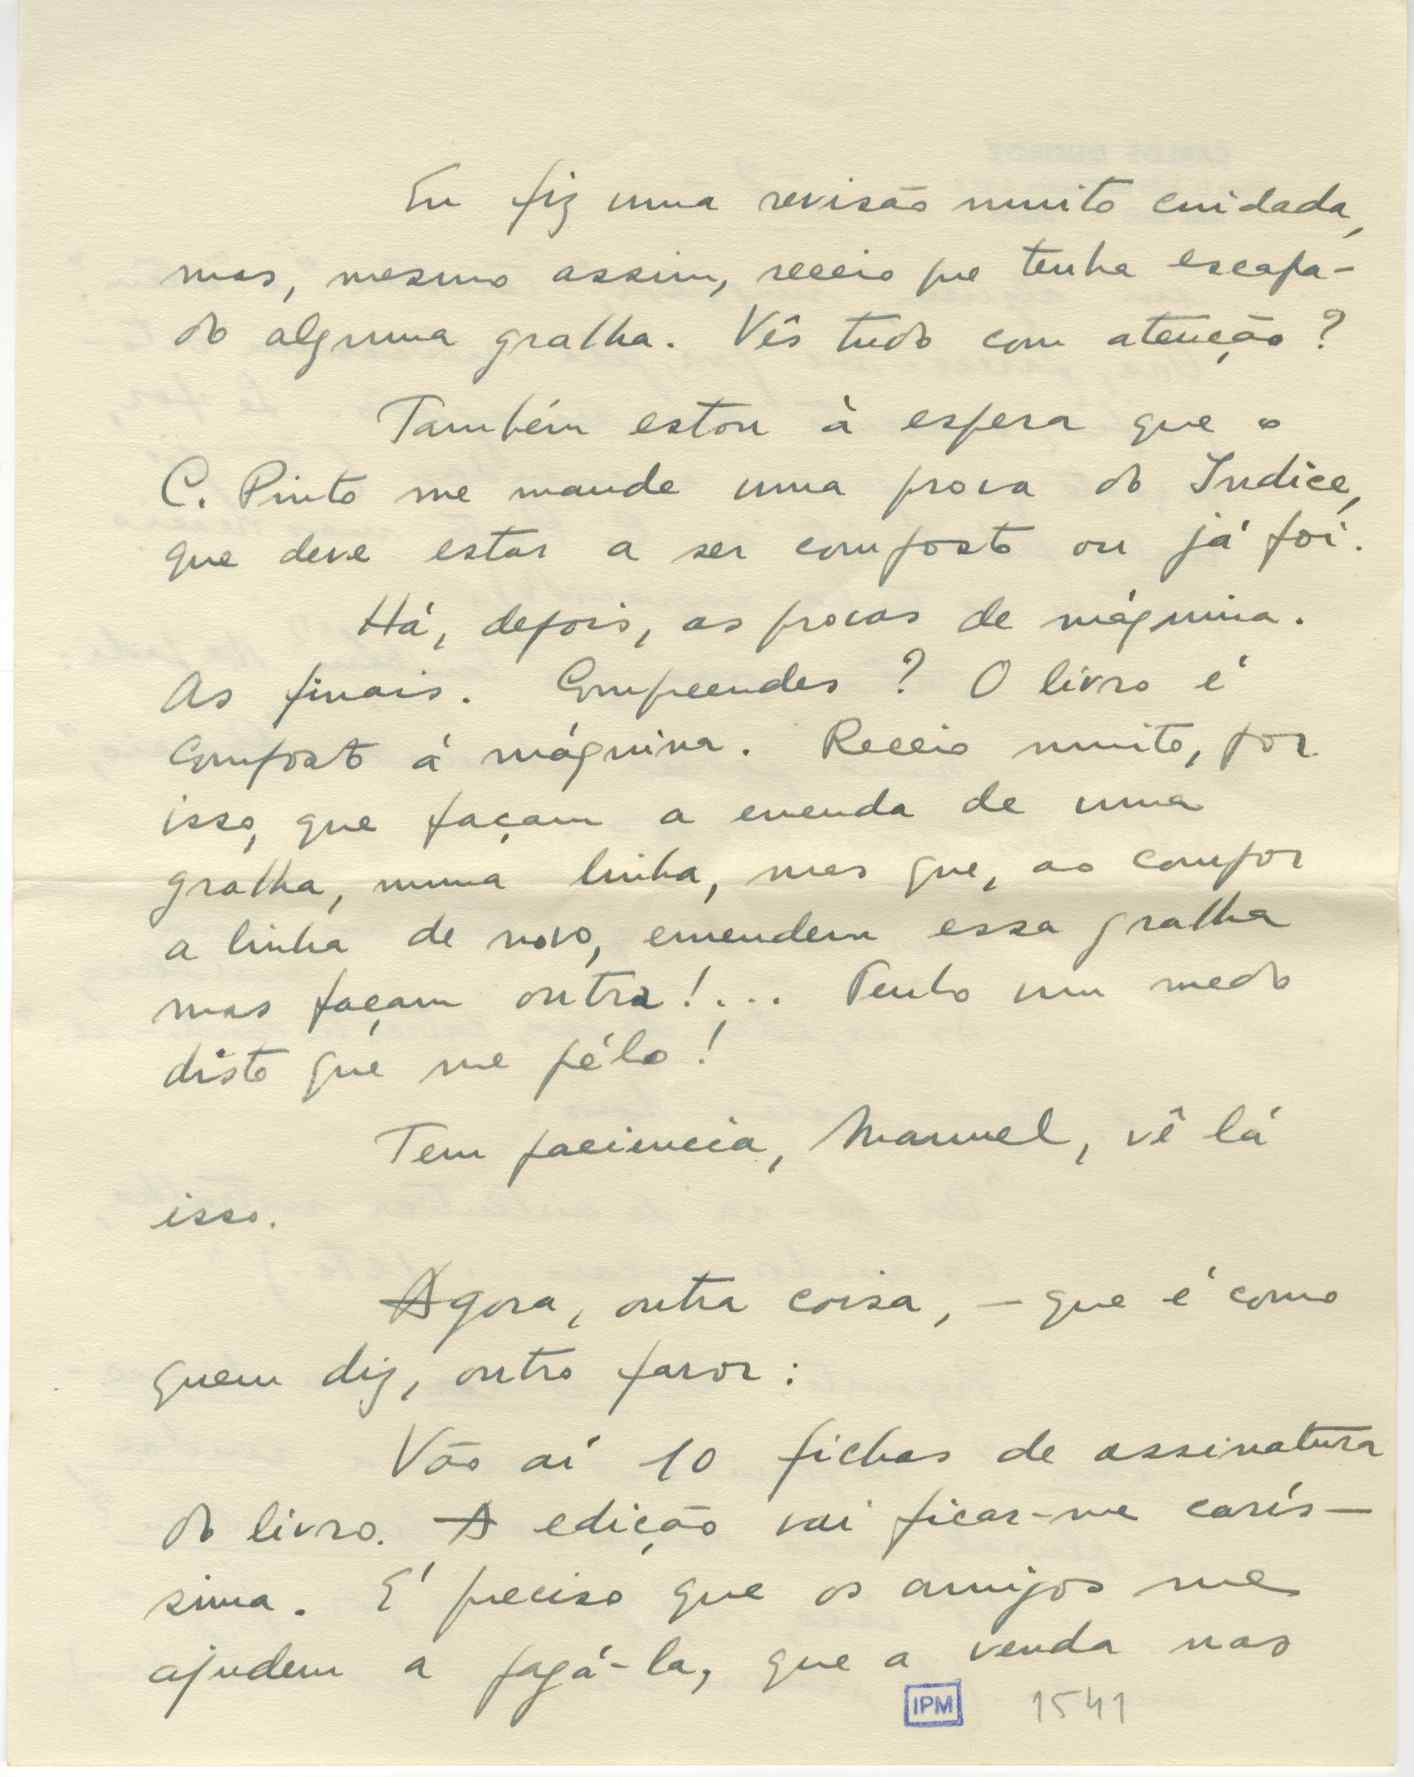 Eu fiz uma revisão muito cuidada,
mas, mesmo assim, receio que tenha escapa-
do alguma gralha. Vês tudo com atenção?
Também estou à espera que o
C. Pinto me mande uma prova do Indice,
que deve estar a ser composto ou já foi.
Há, depois, as provas de máquina.
As finais. Compreendes? O livro é
composto á máquina. Receio muito, por
isso, que façam a emenda de uma
gralha, numa linha, mas que, ao compor
a linha de novo, emendem essa gralha
mas façam outra!... Tenho um medo
disto que me pélo!
Tem paciencia, Manuel, vê lá
isso.
Agora, outra coisa, — que é como
quem diz, outro favor:
Vão aí 10 fichas de assinatura
do livro. A edição vai ficar-me carís-
sima. É preciso que os amigos me
ajudem a pagá-la, que a venda nas
IPM 1541